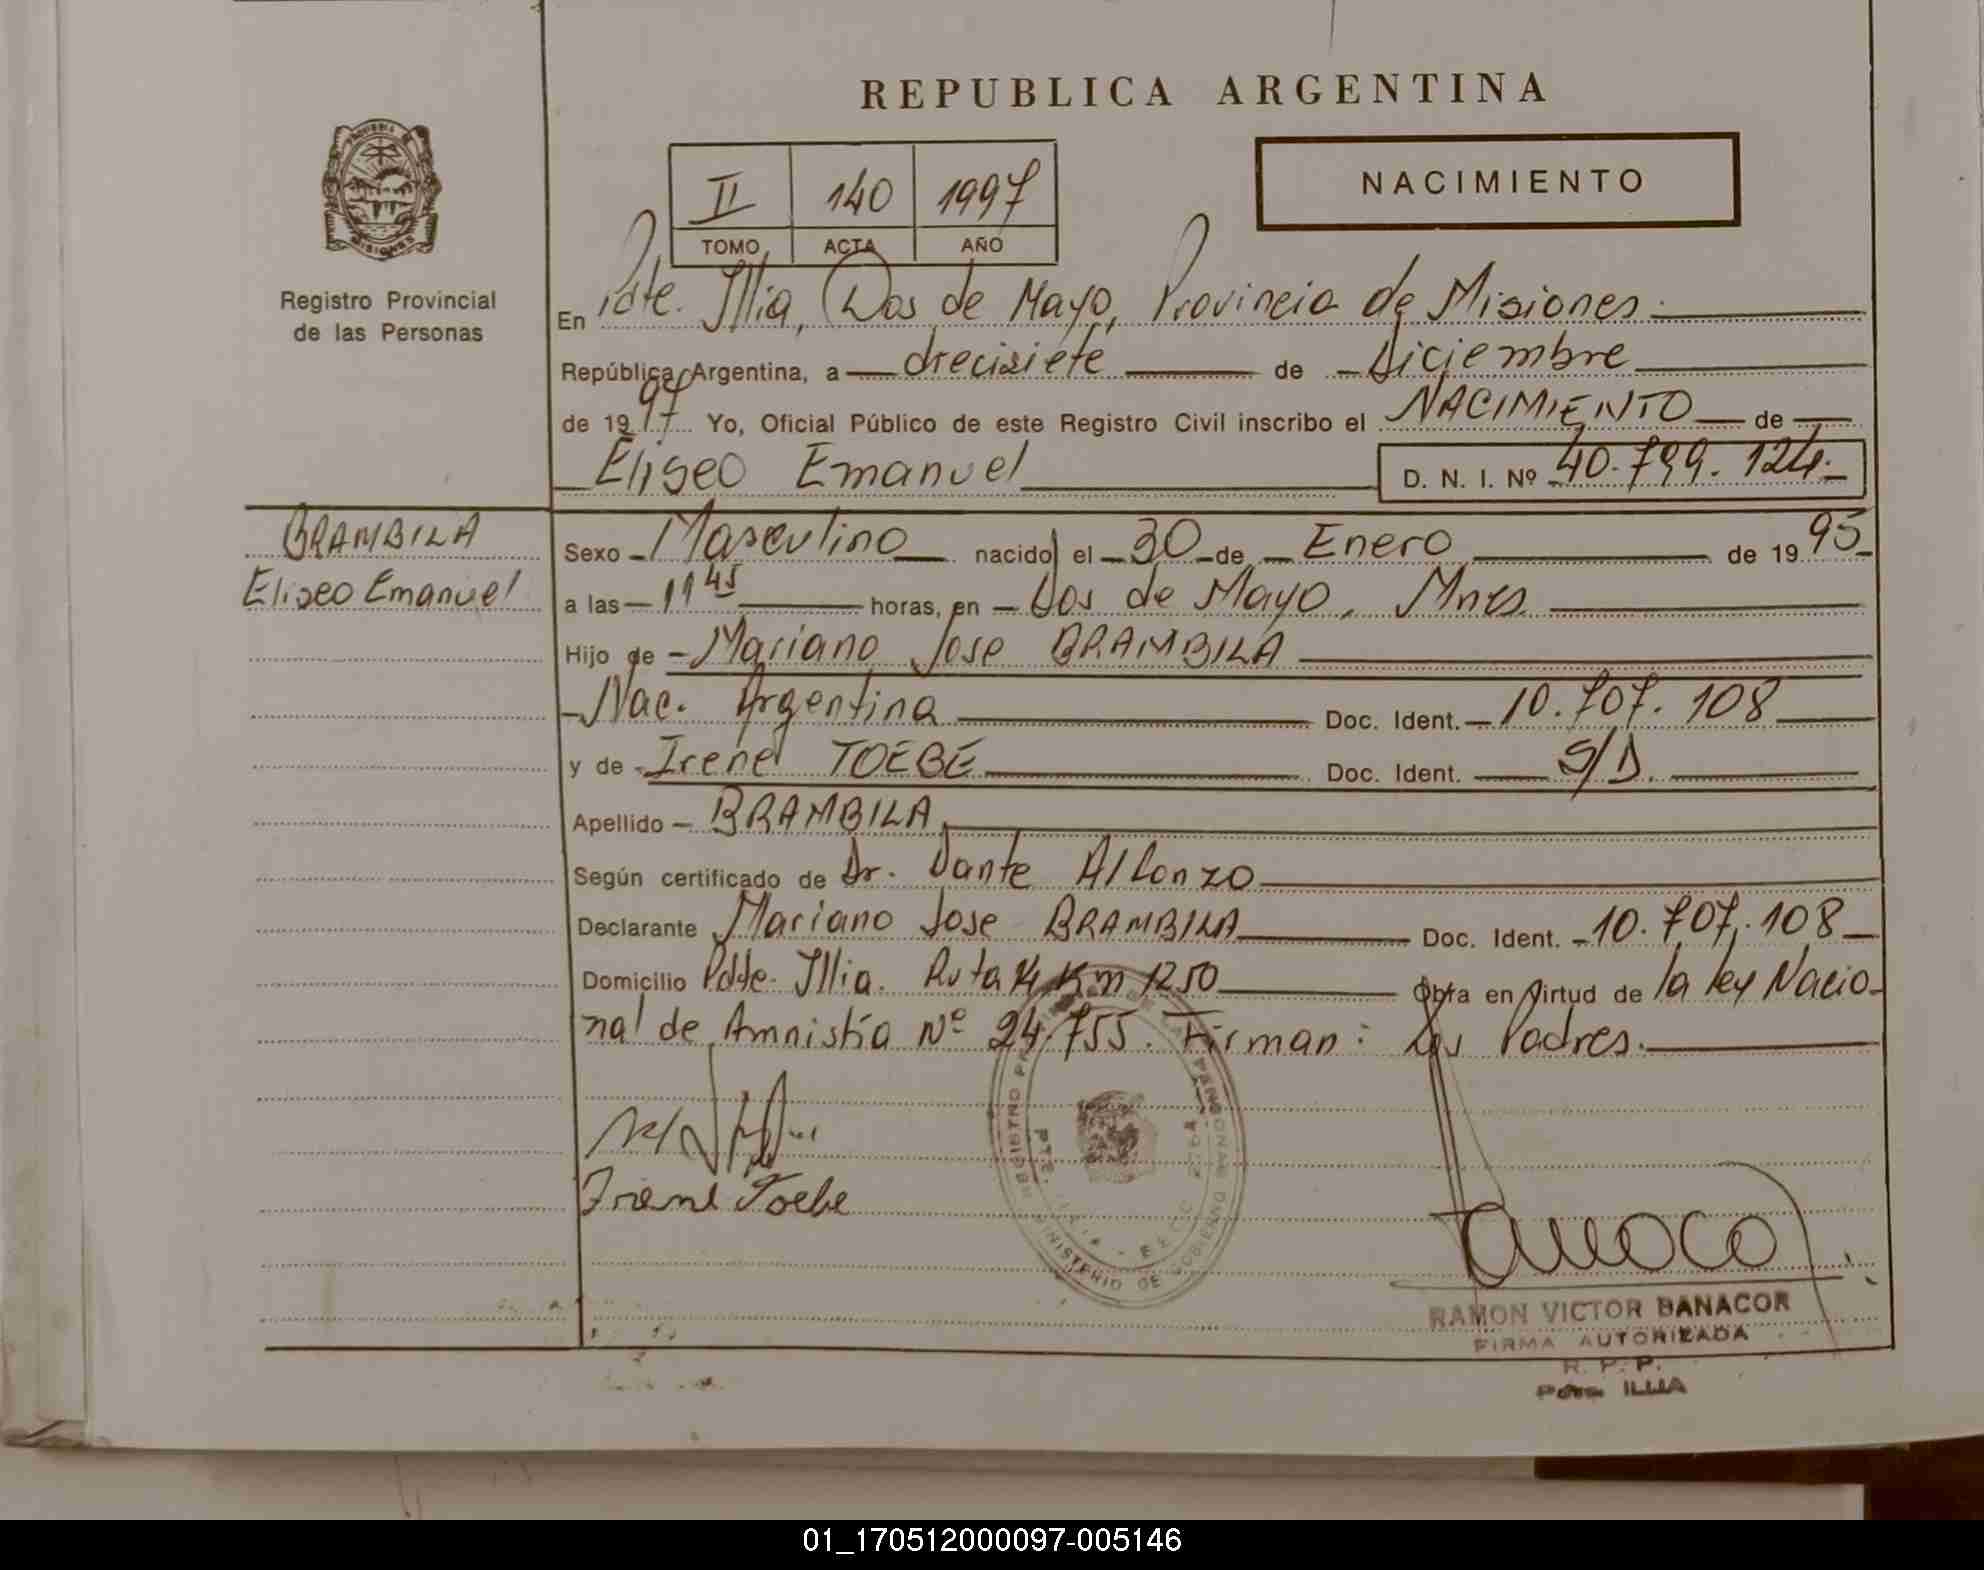 REPUBLICA ARGENTINA
PROVINCIA DE
MISIONES
Registro Provincial
de las Personas
II 140 1997
TOMO ACTA AÑO
NACIMIENTO
En Pdte. Illia, Dos de Mayo, Provincia de Misiones.
República Argentina, a diecisiete de Diciembre
de 1997 Yo, Oficial Público de este Registro Civil inscribo el NACIMIENTO de
Eliseo Emanuel D. N. I. Nº 40.799.124.
BRAMBILA
Eliseo Emanuel
Sexo Masculino nacido el 30 de Enero de 1995
a las 11 45 horas, en Dos de Mayo, Mnes
Hijo de Mariano Jose BRAMBILA
Nac. Argentina Doc. Ident. 10.707.108
y de Irene TOEBE Doc. Ident. S/D.
Apellido BRAMBILA
Según certificado de Dr. Dante Allonzo
Declarante Mariano Jose BRAMBILA Doc. Ident. 10.707.108
Domicilio Pdte. Illia. Ruta 14 Km 1250 Obra en virtud de la ley Nacio-
nal de Amnistía Nº 24.755. Firman: Los Padres.
Irene Toebe
REGISTRO
PTE. ILLIA
MINISTERIO DE GOBIERNO
RAMON VICTOR BANACOR
FIRMA AUTORIZADA
R. P. P.
Pdte. ILLIA
01_170512000097-005146